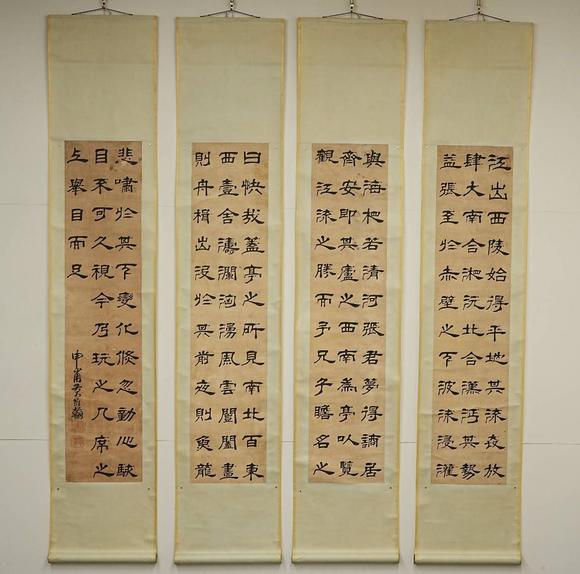 江出西陵始得平地其流奔放
肆大南合湘沅北合漢沔其勢
益張至於赤壁之下波流浸灌
與海相若清河張君夢得謫居
齊安即其廬之西南為亭以覽
觀江流之勝而予兄子瞻名之
曰快哉蓋亭之所見南北百東
西壹舍濤瀾洶湧風雲闓闔晝
則舟楫出没於其前夜則魚龍
悲嘯於其下變化倏忽動心駭
目不可久視今乃玩之几席之
上舉目而足